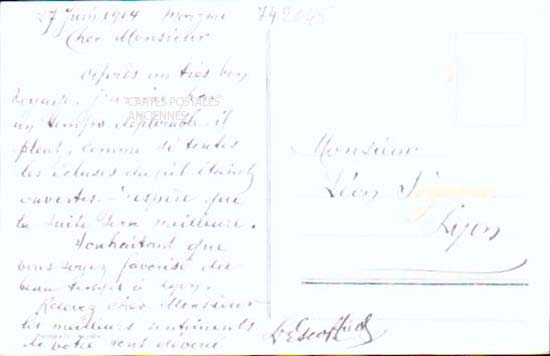 27 Juin 1914 Morzine 742045
Cher Monsieur
après un très bon
voyage, j'arrive
CARTES POSTALES
ANCIENNES
un temps déplorable. il
pleut, comme si toutes
les écluses du ciel étaient
ouvertes. J'espère que
la suite sera meilleure.
Souhaitant que
vous soyez favorisé du
beau temps à Lyon,
Recevez cher Monsieur
les meilleurs sentiments
de votre tout dévoué
L. Escoffier
Monsieur
Léon
Lyon